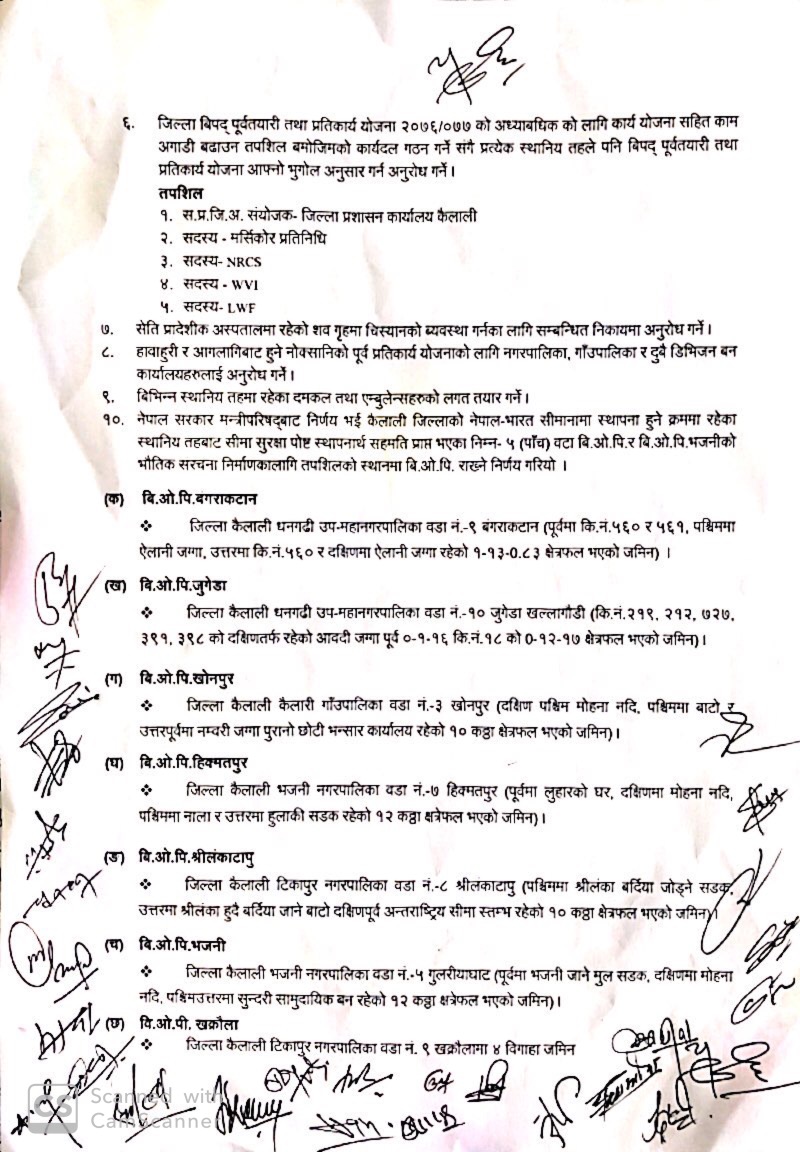 ६. जिल्ला बिपद् पूर्वतयारी तथा प्रतिकार्य योजना २०७६/०७७ को अध्याबधिक को लागि कार्य योजना सहित काम
अगाडी बढाउन तपशिल बमोजिमको कार्यदल गठन गर्ने संगै प्रत्येक स्थानिय तहले पनि बिपद् पूर्वतयारी तथा
प्रतिकार्य योजना आफ्नो भुगोल अनुसार गर्न अनुरोध गर्ने ।
तपशिल
१. स.प्र.जि.अ. संयोजक- जिल्ला प्रशासन कार्यालय कैलाली
२. सदस्य - मर्सिकोर प्रतिनिधि
३. सदस्य- NRCS
४. सदस्य - WVI
५. सदस्य- LWF
७. सेति प्रादेशीक अस्पतालमा रहेको शव गृहमा चिस्यानको ब्यवस्था गर्नका लागि सम्बन्धित निकायमा अनुरोध गर्ने ।
८. हावाहुरी र आगलागिबाट हुने नोक्सानिको पूर्व प्रतिकार्य योजनाको लागि नगरपालिका, गाँउपालिका र दुबै डिभिजन बन
कार्यालयहरुलाई अनुरोध गर्ने ।
९. बिभिन्न स्थानिय तहमा रहेका दमकल तथा एम्बुलेन्सहरुको लगत तयार गर्ने ।
१०. नेपाल सरकार मन्त्रीपरिषद्बाट निर्णय भई कैलाली जिल्लाको नेपाल-भारत सीमानामा स्थापना हुने क्रममा रहेका
स्थानिय तहबाट सीमा सुरक्षा पोष्ट स्थापनार्थ सहमति प्राप्त भएका निम्न- ५ (पाँच) वटा बि.ओ.पि.र बि.ओ.पि.भजनीको
भौतिक सरचना निर्माणकालागि तपशिलको स्थानमा बि.ओ.पि. राख्ने निर्णय गरियो ।
(क) बि.ओ.पि.बगराकटान
❖ जिल्ला कैलाली धनगढी उप-महानगरपालिका वडा नं.-९ बंगराकटान (पूर्वमा कि.नं.५६० र ५६१, पश्चिममा
ऐलानी जग्गा, उत्तरमा कि.नं.५६० र दक्षिणमा ऐलानी जग्गा रहेको १-१३-0.८३ क्षेत्रफल भएको जमिन) ।
(ख) बि.ओ.पि.जुगेडा
❖ जिल्ला कैलाली धनगढी उप-महानगरपालिका वडा नं.-१० जुगेडा खल्लागौडी (कि.नं.२१९, २१२, ७२७,
३९१, ३९८ को दक्षिणतर्फ रहेको आवदी जग्गा पूर्व ०-१-१६ कि.नं.१८ को 0-१२-१७ क्षेत्रफल भएको जमिन) ।
(ग) बि.ओ.पि.खोनपुर
❖ जिल्ला कैलाली कैलारी गाँउपालिका वडा नं.-३ खोनपुर (दक्षिण पश्चिम मोहना नदि, पश्चिममा बाटो र
उत्तरपूर्वमा नम्वरी जग्गा पुरानो छोटी भन्सार कार्यालय रहेको १० कठ्ठा क्षेत्रफल भएको जमिन) ।
(घ) बि.ओ.पि.हिक्मतपुर
❖ जिल्ला कैलाली भजनी नगरपालिका वडा नं.-७ हिक्मतपुर (पूर्वमा लुहारको घर, दक्षिणमा मोहना नदि,
पश्चिममा नाला र उत्तरमा हुलाकी सडक रहेको १२ कठ्ठा क्षत्रेफल भएको जमिन) ।
(ङ) बि.ओ.पि.श्रीलंकाटापु
❖ जिल्ला कैलाली टिकापुर नगरपालिका वडा नं.-८ श्रीलंकाटापु (पश्चिममा श्रीलंका बर्दिया जोड्ने सडक,
उत्तरमा श्रीलंका हुदै बर्दिया जाने बाटो दक्षिणपूर्व अन्तराष्ट्रिय सीमा स्तम्भ रहेको १० कठ्ठा क्षेत्रफल भएको जमिन) ।
(च) बि.ओ.पि.भजनी
❖ जिल्ला कैलाली भजनी नगरपालिका वडा नं.-५ गुलरीयाघाट (पूर्वमा भजनी जाने मुल सडक, दक्षिणमा मोहना
नदि, पश्चिमउत्तरमा सुन्दरी सामुदायिक बन रहेको १२ कठ्ठा क्षेत्रफल भएको जमिन) ।
(छ) वि.ओ.पी. खक्रौला
❖ जिल्ला कैलाली टिकापुर नगरपालिका वडा नं. ९ खक्रौलामा ४ विगाहा जमिन
CS Scanned with
CamScanner